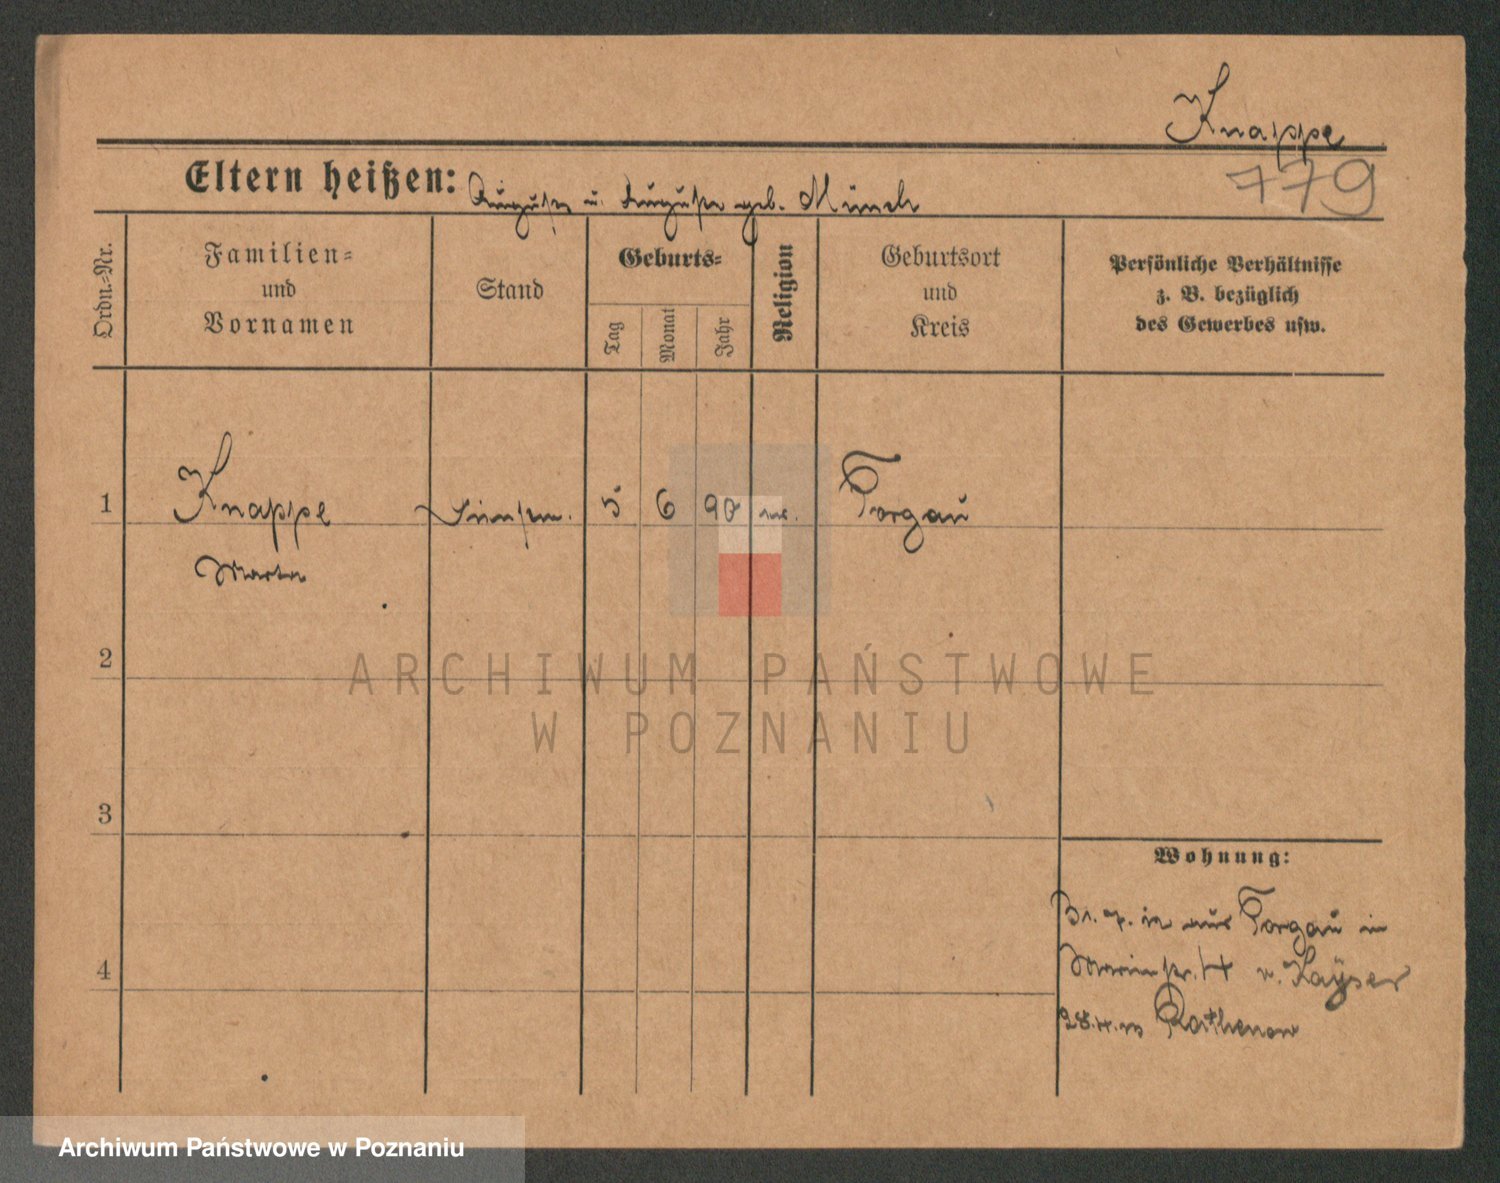 Knappe
779
Eltern heißen: August u. Auguste geb. Münch
Ordn.-Nr.
Familien-
und
Vornamen
Stand
Geburts-
Tag
Monat
Jahr
Religion
Geburtsort
und
Kreis
Persönliche Verhältnisse
z. B. bezüglich
des Gewerbes usw.
1
Knappe
5 6 90
Torgau
Marta
2
ARCHIWUM PAŃSTWOWE
W POZNANIU
3
Wohnung:
aus Torgau in
4
v. Kayser
Rathenow
Archiwum Państwowe w Poznaniu